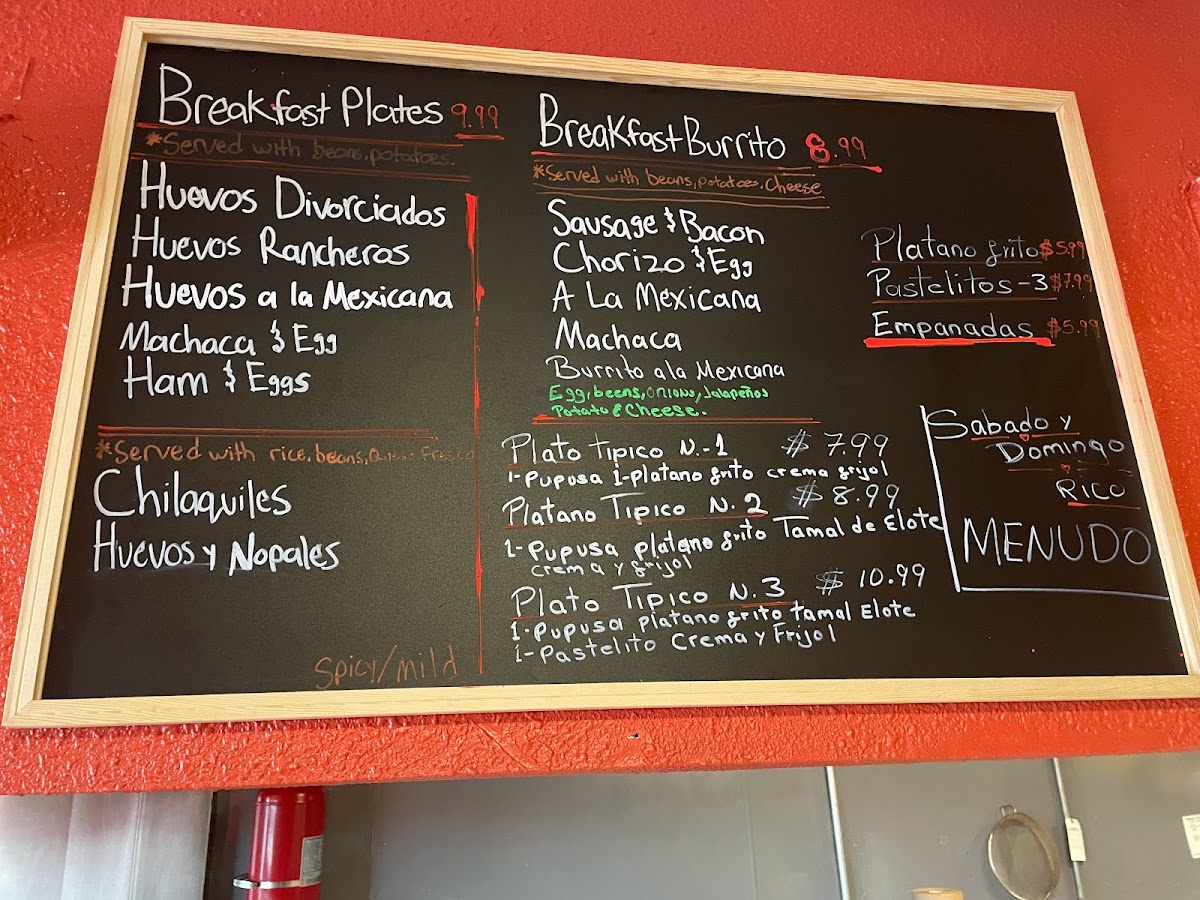 Breakfast Plates 9.99
*Served with beans, potatoes.
Huevos Divorciados
Huevos Rancheros
Huevos a la Mexicana
Machaca & Egg
Ham & Eggs
*Served with rice, beans, Queso Fresco
Chilaquiles
Huevos y Nopales
Spicy/mild
Breakfast Burrito 8.99
*Served with beans, potatoes, Cheese
Sausage & Bacon
Chorizo & Egg
A La Mexicana
Machaca
Burrito a la Mexicana
Egg, beens, onions, Jalapeños
Potato & Cheese.
Plato tipico N.-1 $7.99
1-Pupusa 1-platano frito crema frijol
Platano Tipico N.2 $8.99
1-Pupusa platano frito Tamal de Elote
crema y frijol
Plato Tipico N.3 $10.99
1-Pupusa platano frito tamal Elote
1-Pastelito Crema y Frijol
Platano frito $5.99
Pastelitos-3 $7.99
Empanadas $5.99
Sabado y
Domingo
Rico
MENUDO